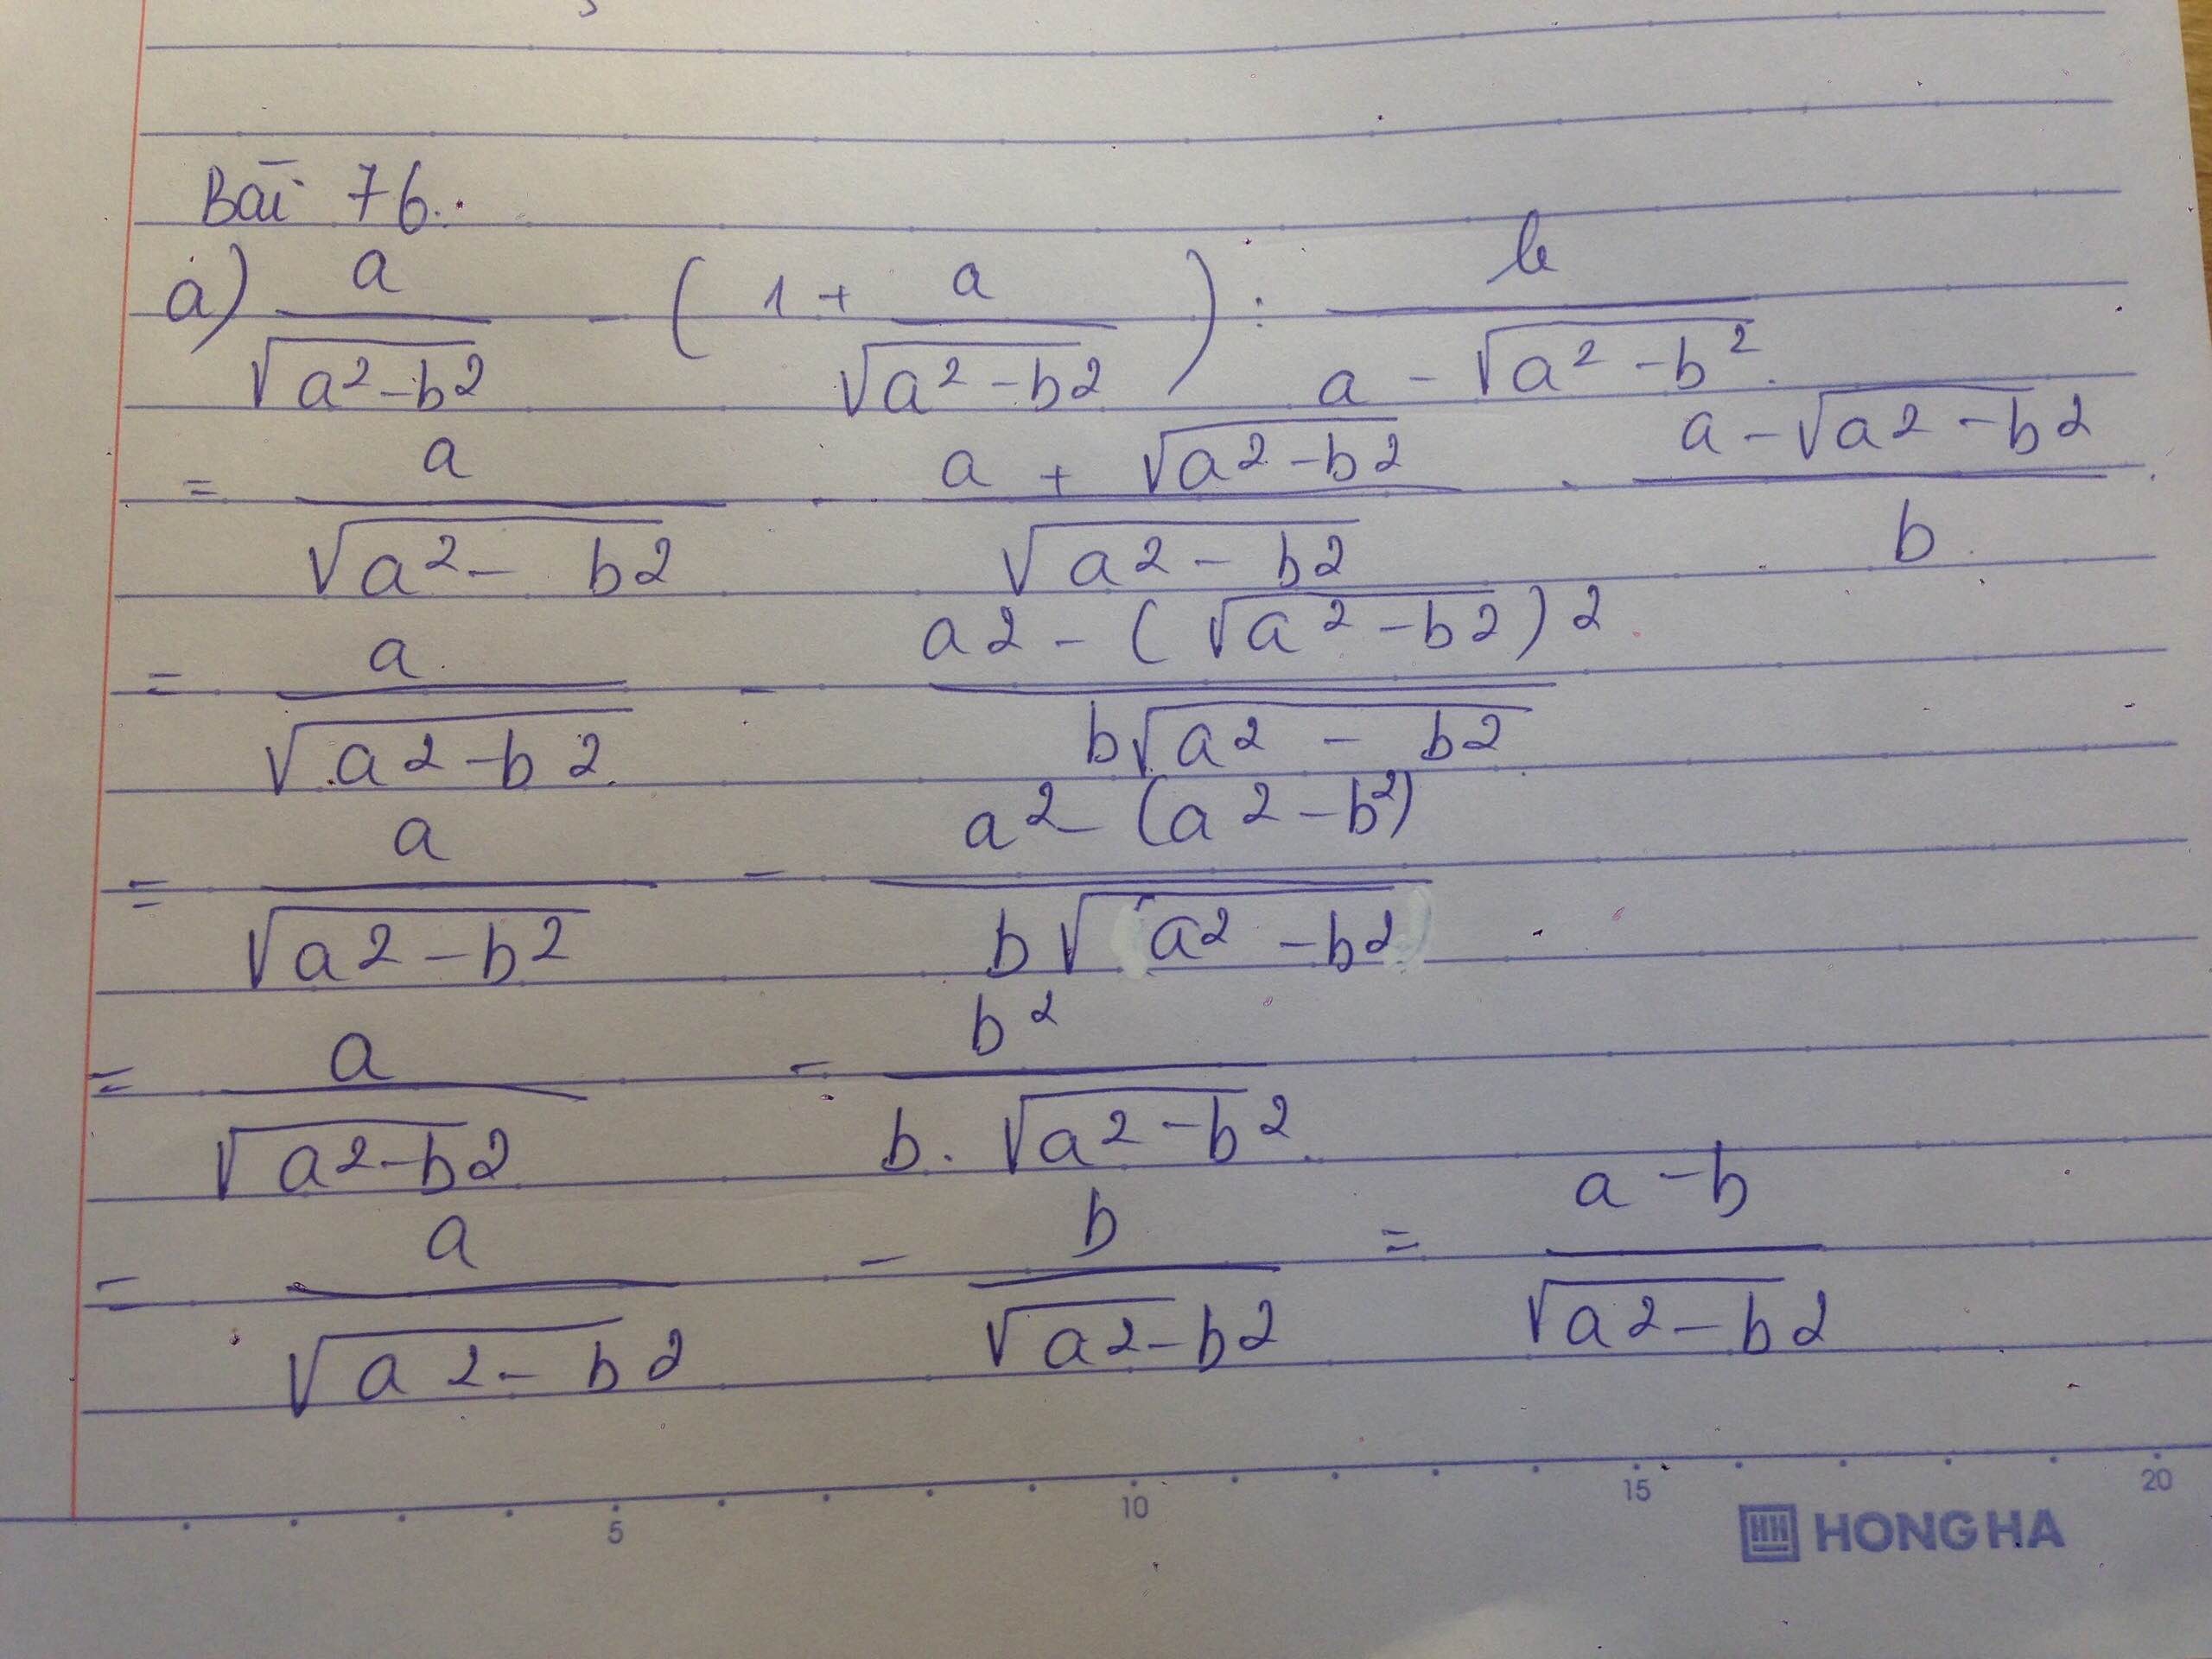 Bài 76.
a) a/√(a²-b²) - (1 + a/√(a²-b²)) : b/(a - √(a²-b²))
= a/√(a²-b²) - (a + √(a²-b²))/√(a²-b²) . (a-√(a²-b²))/b
= a/√(a²-b²) - (a²-(√(a²-b²))²)/(b√(a²-b²))
= a/√(a²-b²) - (a²-(a²-b²))/(b√(a²-b²))
= a/√(a²-b²) - b²/(b.√(a²-b²))
= a/√(a²-b²) - b/√(a²-b²) = (a-b)/√(a²-b²)
5 10 15 20
HONG HA